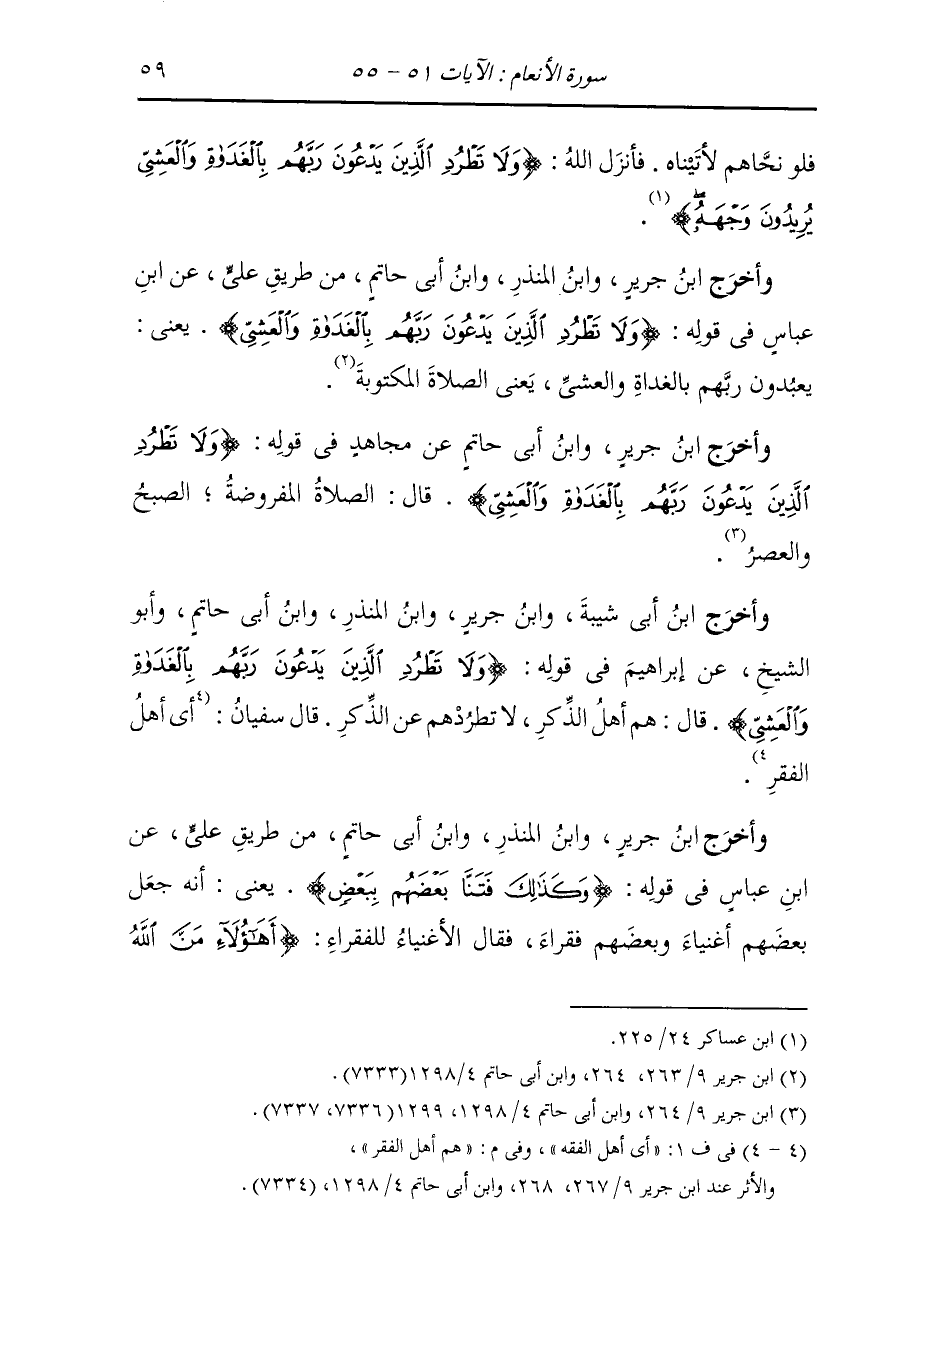 سورة الأنعام : الآيات ٥١ - ٥٥
٥٩
فلو نحَّاهم لأتَيْناه . فأنزَل اللهُ : ﴿وَلَا تَطْرُدِ ٱلَّذِينَ يَدْعُونَ رَبَّهُم بِٱلْغَدَوٰةِ وَٱلْعَشِيِّ
يُرِيدُونَ وَجْهَهُۥۖ﴾(١) .
وأخرَج ابنُ جريرٍ ، وابنُ المنذرِ ، وابنُ أبى حاتمٍ ، من طريقِ علىٍّ ، عن ابنِ
عباسٍ فى قولِه : ﴿وَلَا تَطْرُدِ ٱلَّذِينَ يَدْعُونَ رَبَّهُم بِٱلْغَدَوٰةِ وَٱلْعَشِيِّ﴾ . يعنى :
يعبُدون ربَّهم بالغداةِ والعشىِّ ، يَعنى الصلاةَ المكتوبةَ(٢) .
وأخرَج ابنُ جريرٍ ، وابنُ أبى حاتمٍ عن مجاهدٍ فى قولِه : ﴿وَلَا تَطْرُدِ
ٱلَّذِينَ يَدْعُونَ رَبَّهُم بِٱلْغَدَوٰةِ وَٱلْعَشِيِّ﴾ . قال : الصلاةُ المفروضةُ ؛ الصبحُ
والعصرُ(٣) .
وأخرَج ابنُ أبى شيبةَ ، وابنُ جريرٍ ، وابنُ المنذرِ ، وابنُ أبى حاتمٍ ، وأبو
الشيخِ ، عن إبراهيمَ فى قولِه : ﴿وَلَا تَطْرُدِ ٱلَّذِينَ يَدْعُونَ رَبَّهُم بِٱلْغَدَوٰةِ
وَٱلْعَشِيِّ﴾ . قال : هم أهلُ الذِّكرِ ، لا تطرُدْهم عن الذِّكرِ . قال سفيانُ : (٤أى أهلُ
الفقرِ٤) .
وأخرَج ابنُ جريرٍ ، وابنُ المنذرِ ، وابنُ أبى حاتمٍ ، من طريقِ علىٍّ ، عن
ابنِ عباسٍ فى قولِه : ﴿وَكَذَٰلِكَ فَتَنَّا بَعْضَهُم بِبَعْضٍ﴾ . يعنى : أنه جعَل
بعضَهم أغنياءَ وبعضَهم فقراءَ ، فقال الأغنياءُ للفقراءِ : ﴿أَهَٰٓؤُلَآءِ مَنَّ ٱللَّهُ
(١) ابن عساكر ٢٤/ ٢٢٥.
(٢) ابن جرير ٩/ ٢٦٣، ٢٦٤، وابن أبى حاتم ٤/١٢٩٨ (٧٣٣٣).
(٣) ابن جرير ٩/ ٢٦٤، وابن أبى حاتم ٤/ ١٢٩٨، ١٢٩٩ (٧٣٣٦، ٧٣٣٧).
(٤ - ٤) فى ف ١: «أى أهل الفقه» ، وفى م : «هم أهل الفقر» ،
والأثر عند ابن جرير ٩/ ٢٦٧، ٢٦٨، وابن أبى حاتم ٤/ ١٢٩٨، (٧٣٣٤).